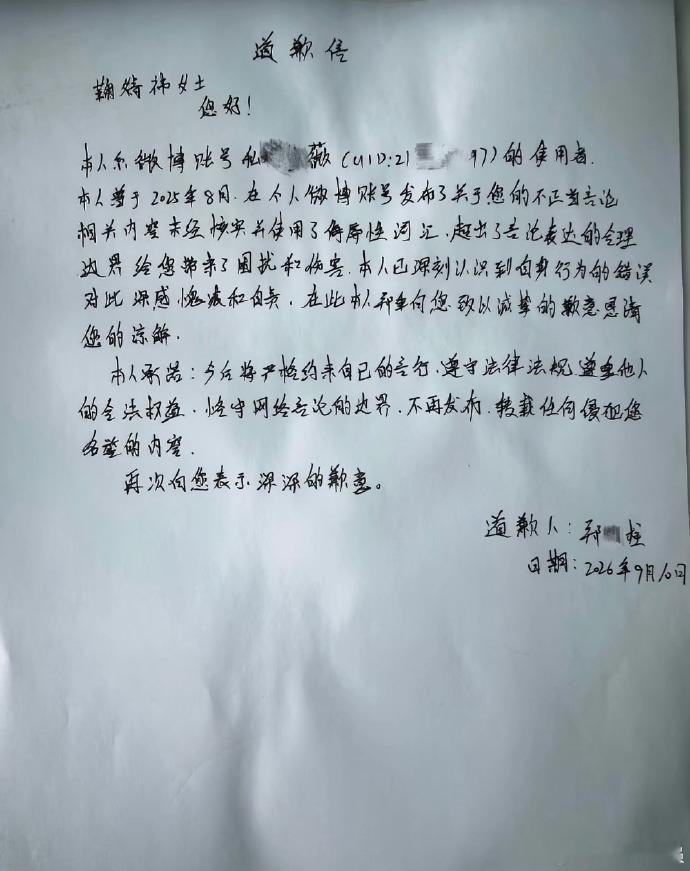 道歉信
鞠婧祎女士
您好!
本人系微博账号 薇(UID:21 97)的使用者.
本人曾于2025年8月.在个人微博账号发布了关于您的不正当言论
相关内容未经核实并使用了侮辱性词汇.超出了言论表达的合理
边界给您带来了困扰和伤害.本人已深刻认识到自身行为的错误
对此深感愧疚和自责.在此本人郑重向您致以诚挚的歉意恳请
您的谅解.
本人承诺:今后将严格约束自己的言行,遵守法律法规尊重他人
的合法权益.恪守网络言论的边界.不再发布.转载任何侵犯您
名誉的内容.
再次向您表示深深的歉意。
道歉人:郑
日期:2026年9月10日